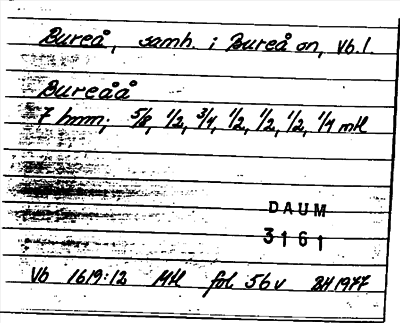 Bureå, samh. i Bureå sn, Vb.l.
Bureåå
7 hmn; 5/8, 1/2, 3/4, 1/2, 1/2, 1/2, 1/4 mtl
DAUM
3161
Vb 1619:12 Mtl fol. 56v BH 1977